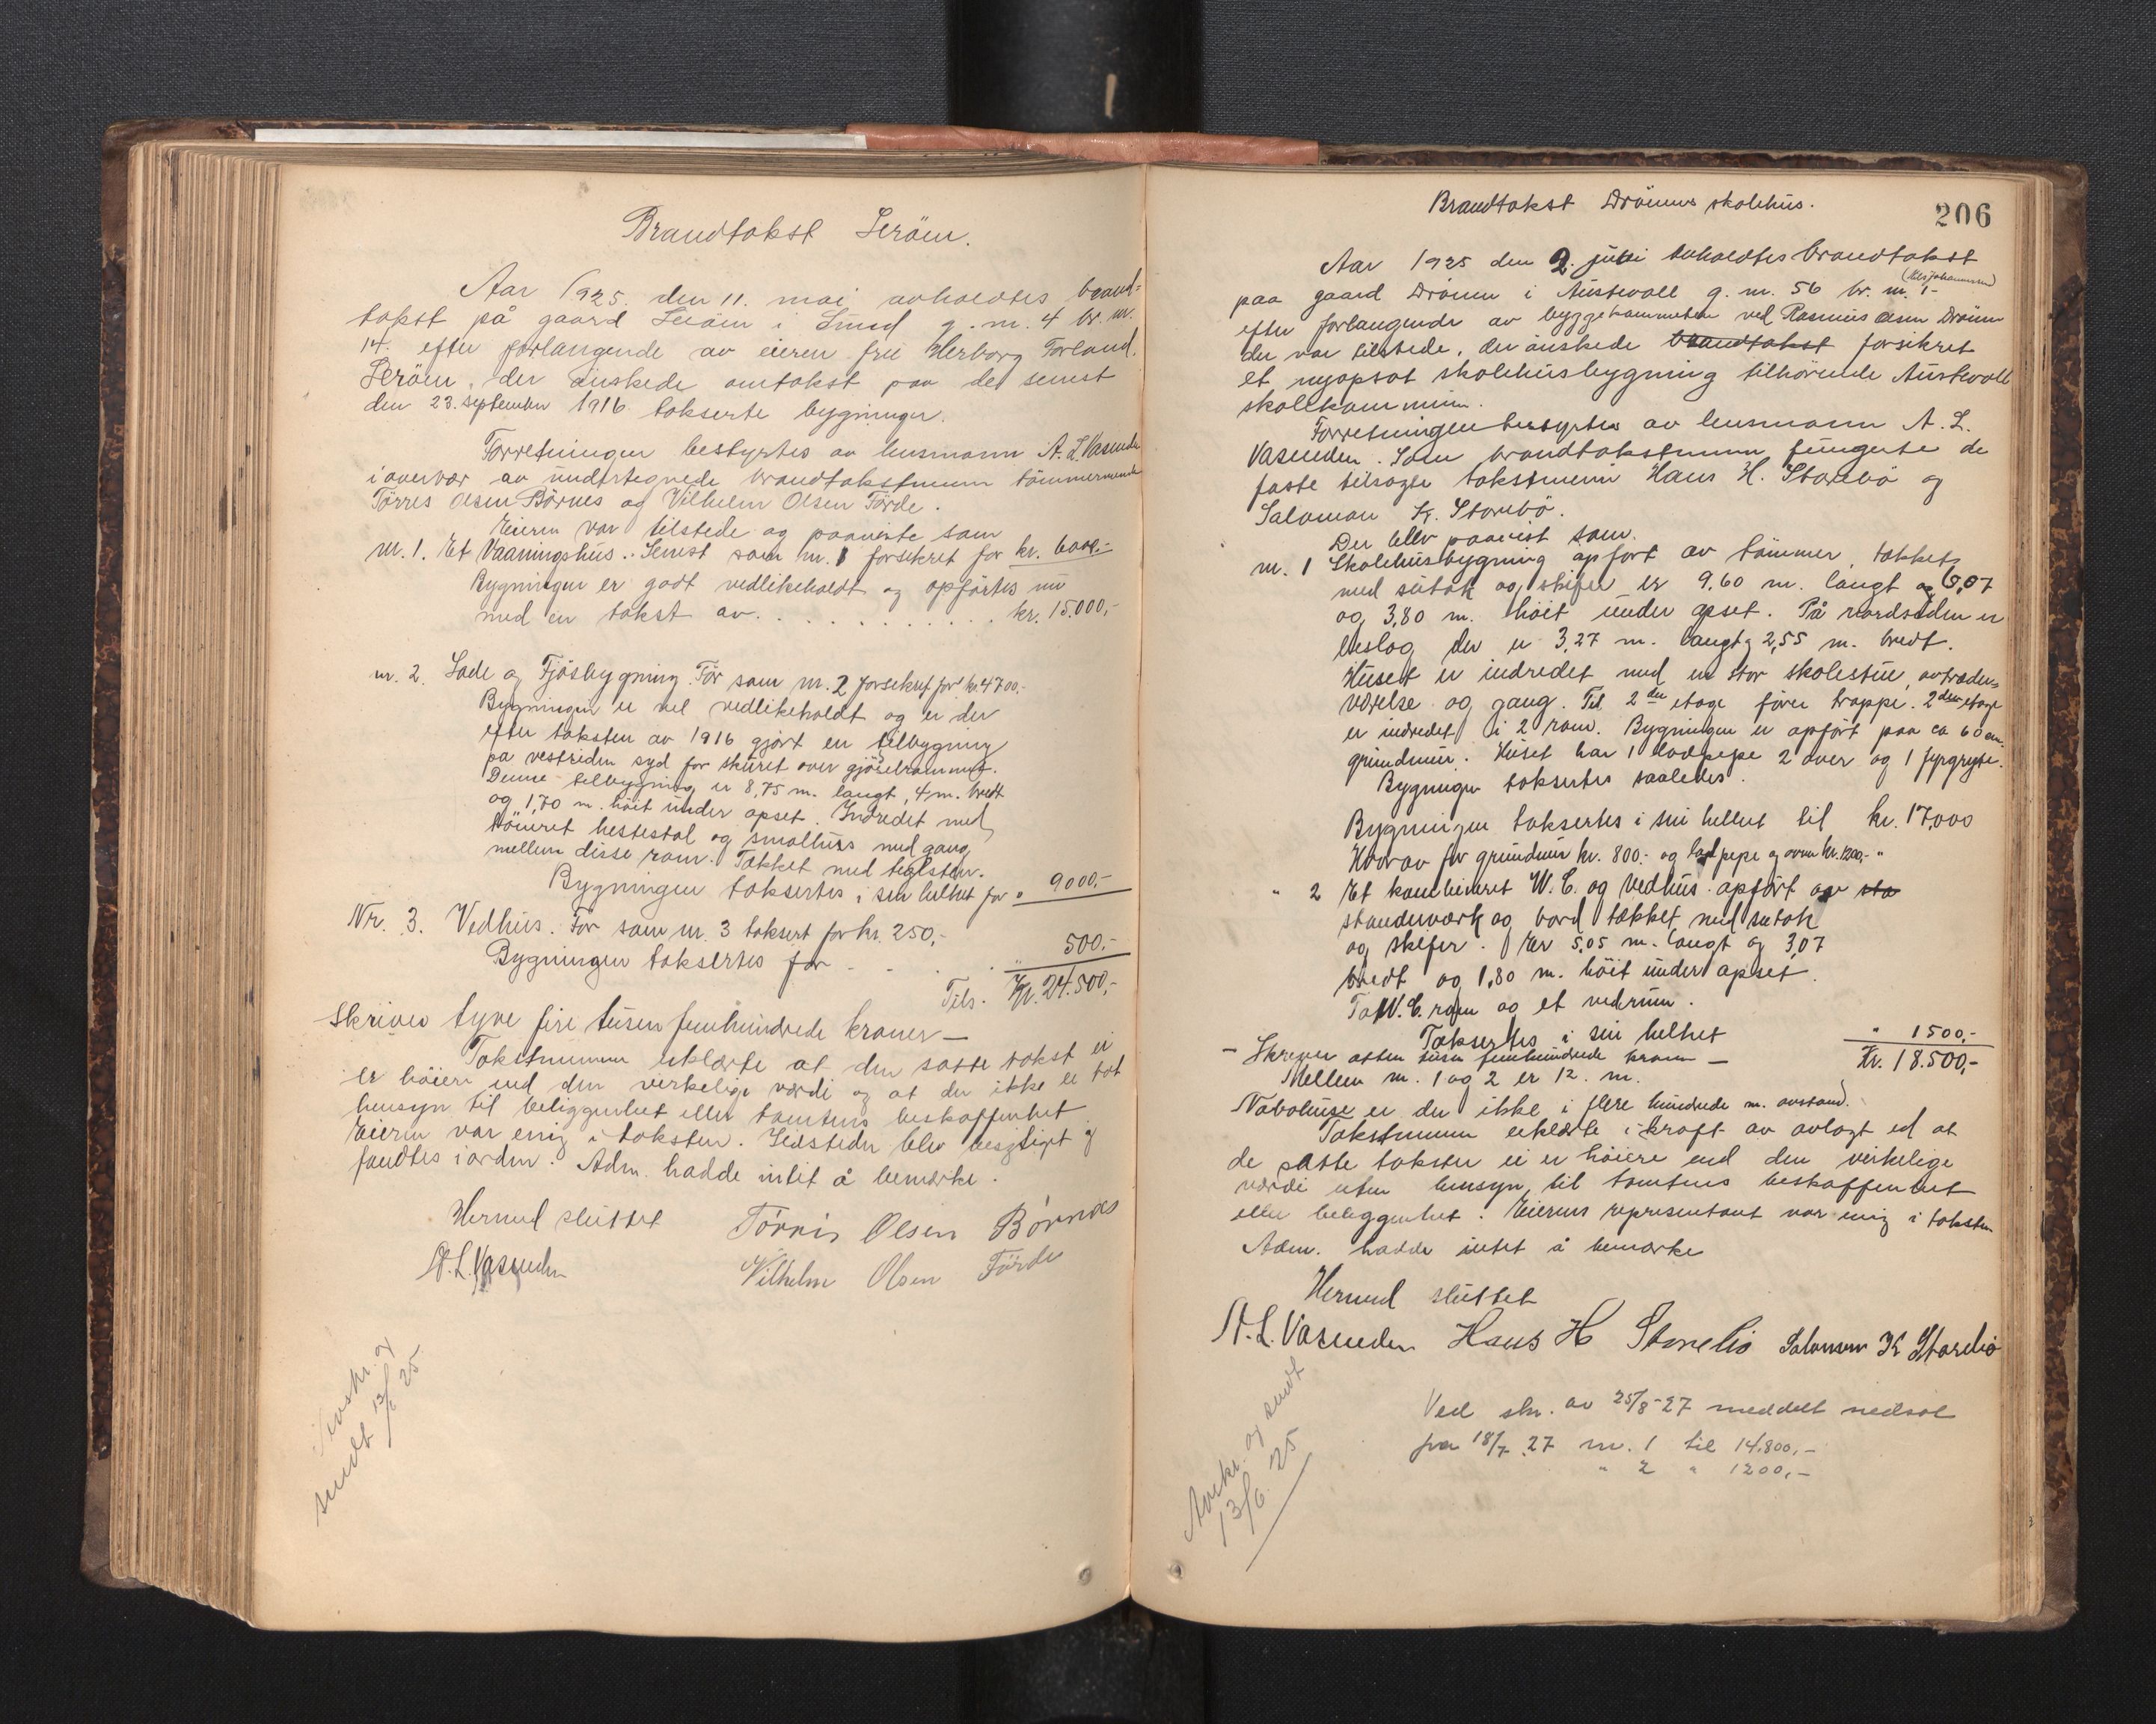 Brandtakst Leröen.
Aar 1925. den 11. mai avholdtes brand-
takst på gaard Leröen i Sund g. nr. 4 br. nr.
14. efter forlangende av eieren fru Herborg Forland.
Leröen, der önskede omtakst paa de senest
den 23. september 1916 takserte bygninger.
Forretningen bestyrtes av lensmann A. L. Vasenden
i overvær av undertegnede brandtakstmenn tömmermenn
Törres Olsen Börnes og Vilhelm Olsen Förde.
Eieren var tilstede og paaviste som
nr. 1. Et Vaaningshus. Senest som nr. 1 forsikret for kr. 6000.-
Bygningen er godt vedlikeholdt og opförtes nu
med en takst av . . . . . . . . . . . . kr. 15.000,-
nr. 2. Lade og Fjösbygning. För som nr. 2 forsikret for kr. 4700.-
Bygningen er vel vedlikeholdt og er der
efter taksten av 1916 gjört en tilbygning
på vestsiden syd for skuret over gjödselrommet.
Denne tilbygning er 8,75 m. langt, 4 m. bredt
og 1,70 m. höit under opset. Indredet med
hestestal og smalhus med gang
mellem disse rom. Tækket med teglsten.
Bygningen taksertes i sin helhet for " 9000,-
Nr. 3. Vedhus. För som nr. 3 taksert for kr. 250,-
Bygningen taksertes for - . . . " 500.-
Tils. Kr. 24.500,-
Skriver tyve fire tusen femhundrede kroner —
Takstmennene erklærte at den satte takst ei
er höiere end den verkelige værdi og at der ikke er tat
hensyn til beliggenhet eller tomtens beskaffenhet
Eieren var enig i taksten. Ildsteder blev besigtiget og
fandtes i orden. Adm. hadde intet å bemærke.
Hermed sluttet
A. L. Vasenden
Törris Olsen Börnes
Vilhelm Olsen Förde
og
sendt 13/6 25
206
Brandtakst Drönens skolehus.
Aar 1925 den 2. juni avholdtes brandtakst
paa gaard Drönen i Austevoll g. nr. 56 br. nr. 1-
efter forlangende av byggekommiteen ved Rasmus Olsen Drönen
der var tilstede, der önskede brandtakst forsikret
et nyopsat skolehusbygning tilhörende Austevoll
skolekommune.
Forretningen bestyrtes av lensmann A. L.
Vasenden. Som brandtakstmenn fungerte de
faste tilsagte takstmenn Hans H. Storebö og
Salomon K. Storebö.
Der blev paavist som.
nr. 1 Skolehusbygning opfört av tömmer, tækket
med sutak og skifer er 9,60 m. langt og 6,07
og 3,80 m. höit under opset. På nordsiden er
beslag der er 3,27 m. langt og 2,55 m. bredt.
Huset er indredet med en stor skolestue, avtrædes-
værelse og gang. Til 2den etage förer trappe. 2den etage
er indredet i 2 rom. Bygningen er opfört paa ca 60 cm.
grundmur. Huset har 1 lodpipe 2 over og 1 fyrgryte.
Bygningen taksertes saaledes.
Bygningen taksertes i sin helhet til kr. 17,000
Hvorav for grundmur kr. 800.- og lodpipe og ovner kr. 1200,- "
" 2 Et kombineret W.C. og Vedhus opfört av sta
standerværk og bord tækket med sutak
og skifer. Er 5,05 m. langt og 3,07
bredt og 1,80 m. höit under opset.
To W.C. rom og et vedrum.
Taksertes i sin helhet " 1500,-
- Skriver atten tusen femhundrede kroner - Kr. 18.500,-
Mellem nr. 1 og 2 er 12. m.
Nabohuse er der ikke i flere hundrede m. avstand.
Takstmennene erklærte i kraft av avlagt ed at
de satte takster ei er höiere end den verkelige
værdi uten hensyn til tomtens beskaffenhet
eller beliggenhet. Eierens representant var enig i taksten
Adm. hadde intet å bemærke
Hermed sluttet
A. L. Vasenden Hans H Storebö Salomon K Storebö
Ved skr. av 25/8-27 meddelt nedsat
fra 18/7 27 nr. 1 til 14.800,-
" 2 " 1200,-
Avskr. og sendt
13/6. 25